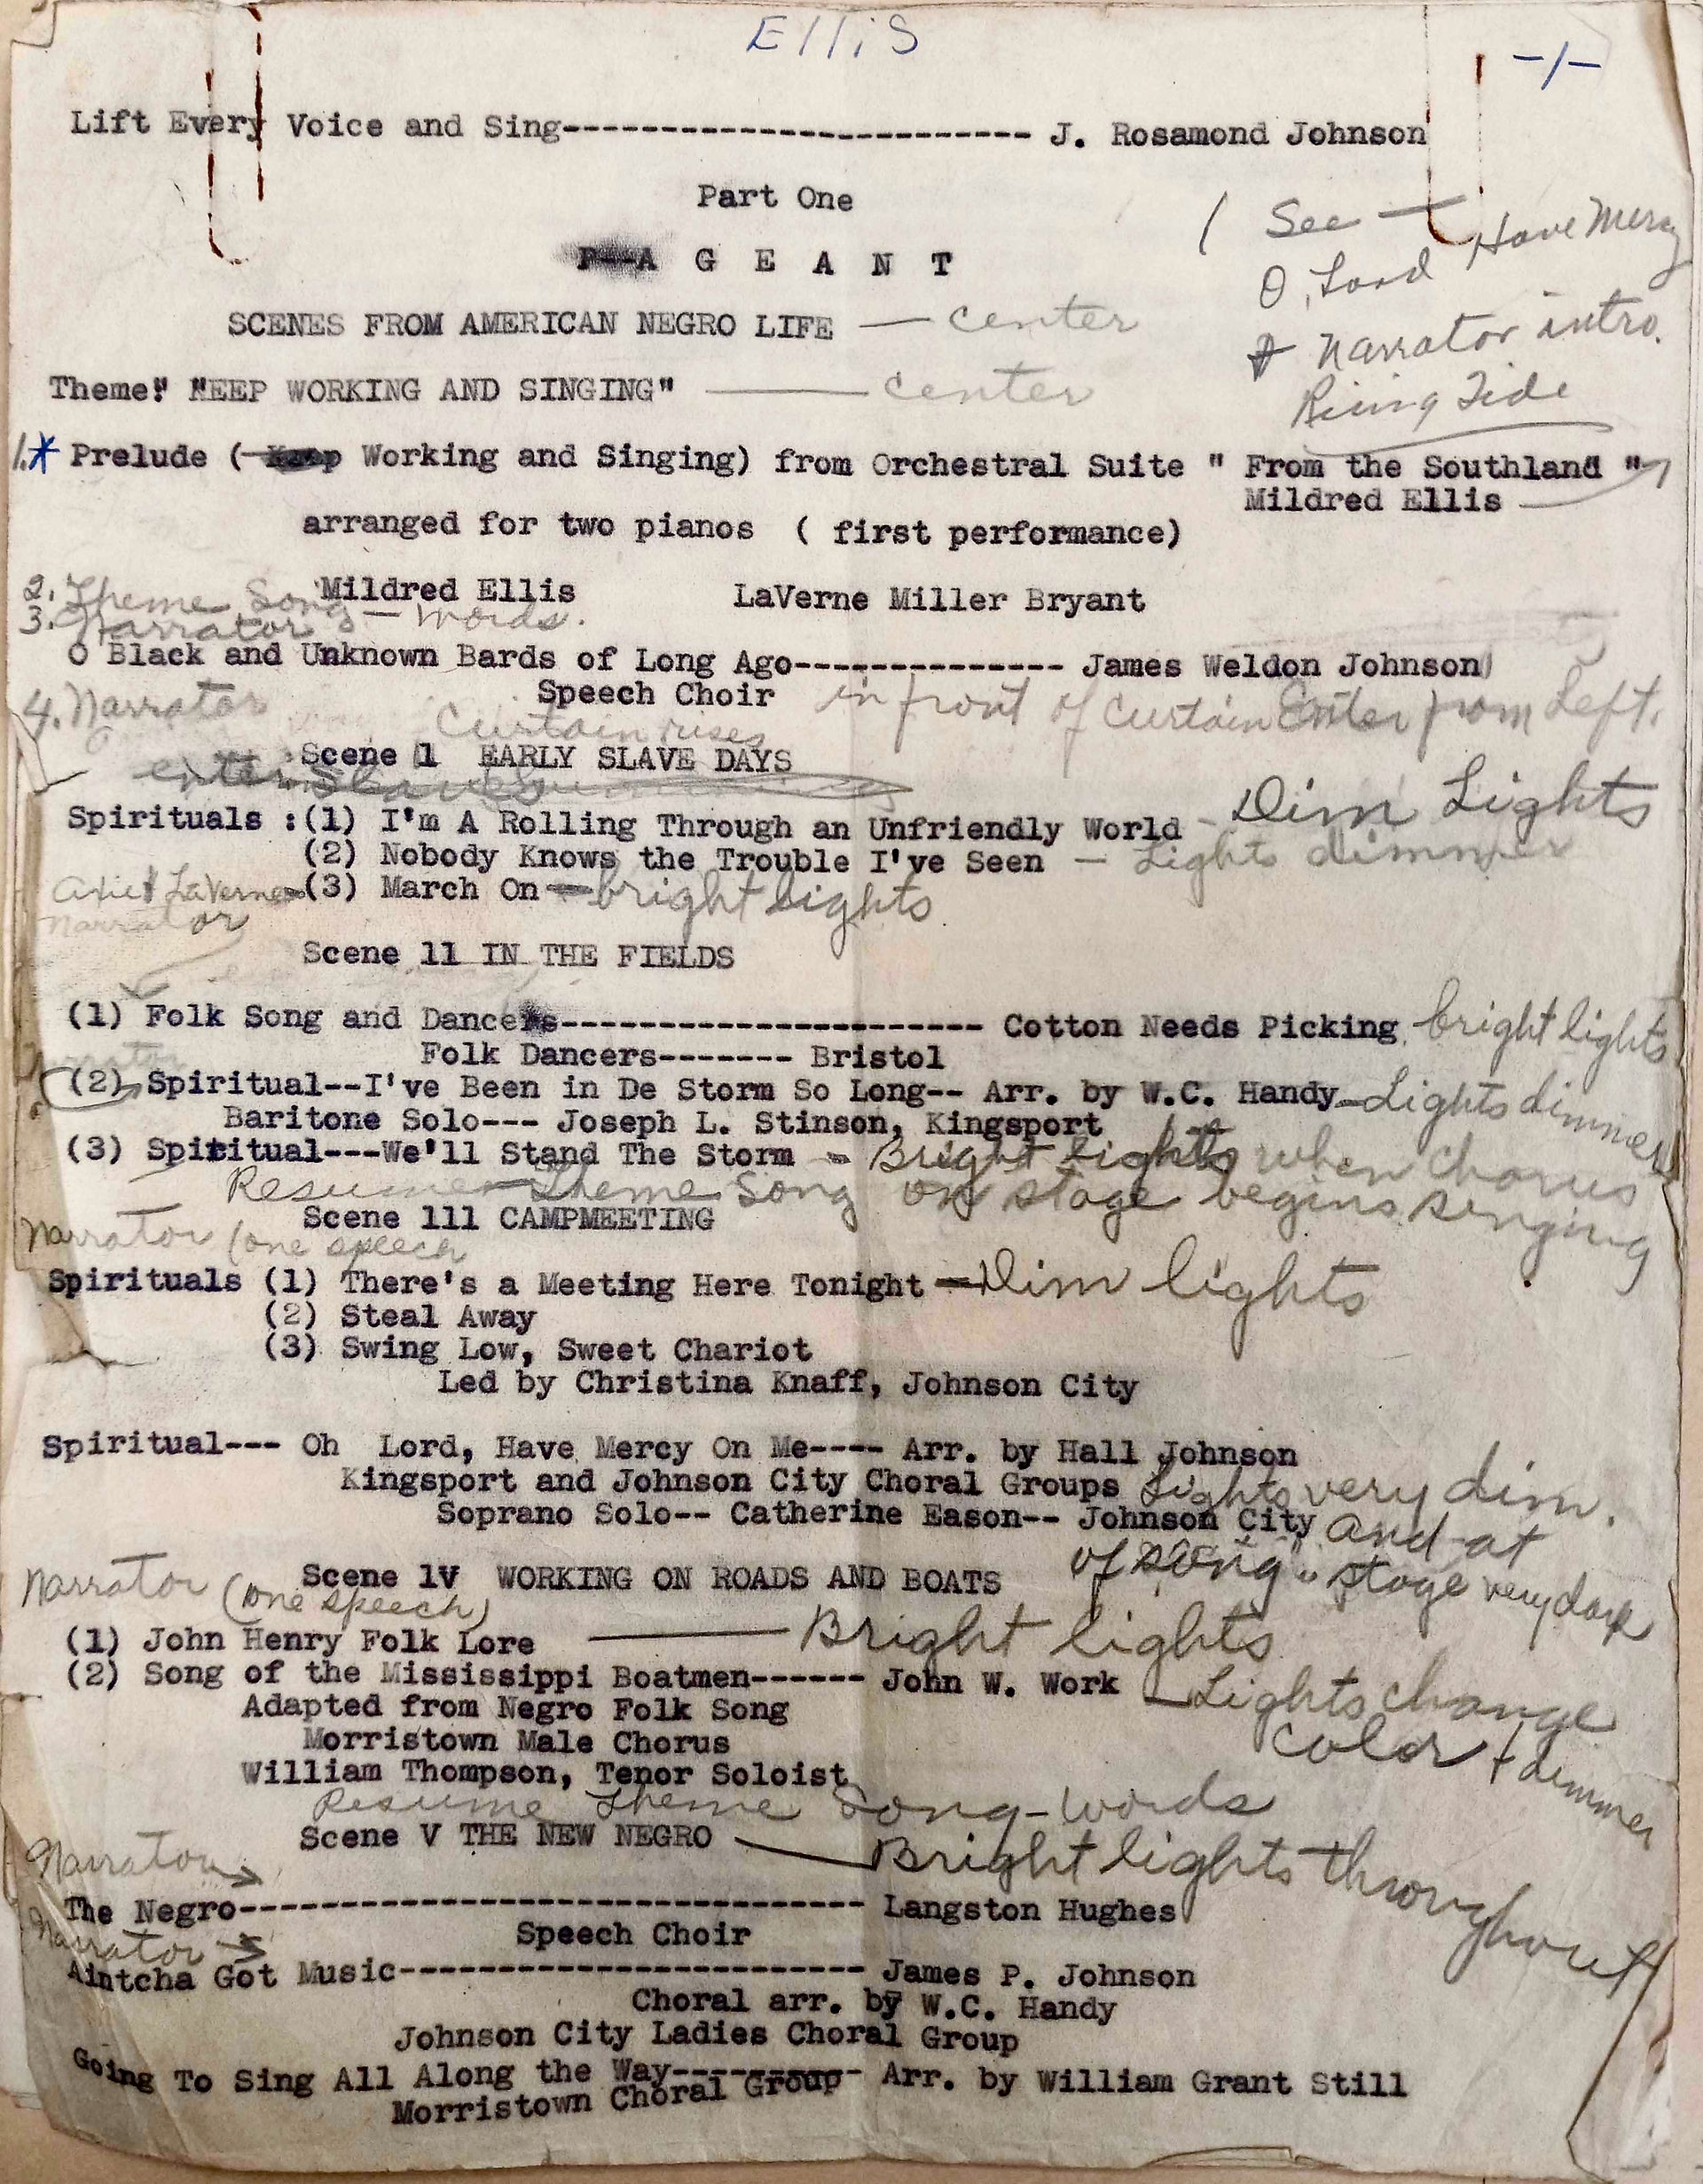 Ellis
-1-
Lift Every Voice and Sing------------------------ J. Rosamond Johnson
Part One
P A G E A N T
( See — Have Mercy
O, Lord
& Narrator intro.
Rising Tide
SCENES FROM AMERICAN NEGRO LIFE — center
Theme: "KEEP WORKING AND SINGING" — center
1.* Prelude ( Keep Working and Singing) from Orchestral Suite " From the Southland "
Mildred Ellis
arranged for two pianos ( first performance)
Mildred Ellis LaVerne Miller Bryant
2. Theme Song — words.
3. Narrator
O Black and Unknown Bards of Long Ago-------------- James Weldon Johnson
Speech Choir in front of curtain Enter from Left.
4. Narrator
Curtain rises
Scene 1 EARLY SLAVE DAYS
enter slaves
Spirituals :(1) I'm A Rolling Through an Unfriendly World - Dim Lights
(2) Nobody Knows the Trouble I've Seen — Lights dimmer
LaVerne (3) March On — bright lights
Narrator
Scene 11 IN THE FIELDS
(1) Folk Song and Dancers---------------------- Cotton Needs Picking bright lights
Folk Dancers------- Bristol
Narrator
(2) Spiritual--I've Been in De Storm So Long-- Arr. by W.C. Handy — Lights dimmer
Baritone Solo--- Joseph L. Stinson, Kingsport
(3) Spiritual---We'll Stand The Storm - Bright lights when chorus
on stage begins singing
Resume Theme Song
Scene 111 CAMPMEETING
Narrator (one speech
Spirituals (1) There's a Meeting Here Tonight — Dim lights
(2) Steal Away
(3) Swing Low, Sweet Chariot
Led by Christina Knaff, Johnson City
Spiritual--- Oh Lord, Have Mercy On Me---- Arr. by Hall Johnson
Kingsport and Johnson City Choral Groups Lights very dim.
Soprano Solo-- Catherine Eason-- Johnson City and at
of song stage very dark
Scene 1V WORKING ON ROADS AND BOATS
Narrator (one speech)
(1) John Henry Folk Lore — Bright lights
(2) Song of the Mississippi Boatmen------ John W. Work — Lights change
color + dimmer
Adapted from Negro Folk Song
Morristown Male Chorus
William Thompson, Tenor Soloist
Resume Theme Song - words
Scene V THE NEW NEGRO — Bright lights throughout
Narrator →
The Negro-------------------------------- Langston Hughes
Speech Choir
Narrator →
Aintcha Got Music------------------------ James P. Johnson
Choral arr. by W.C. Handy
Johnson City Ladies Choral Group
Going To Sing All Along the Way---------- Arr. by William Grant Still
Morristown Choral Group